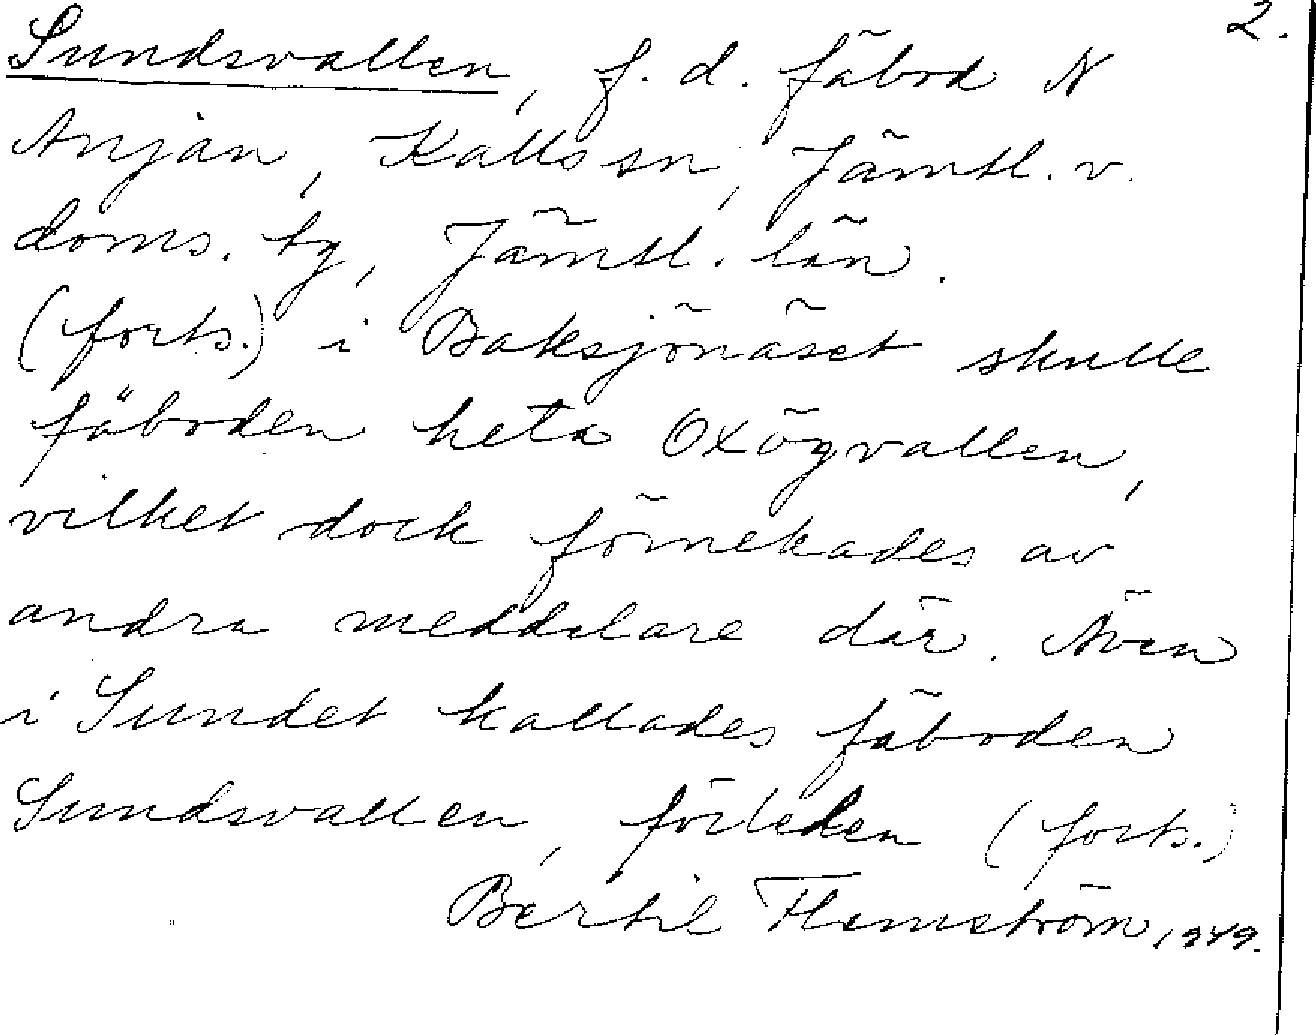 2.
Sundsvallen, f. d. fäbod N
Anjan, Kalls sn, Jämtl. v.
doms. tg, Jämtl. län.
(forts.) i Baksjönäset skulle
fäboden heta Oxögvallen,
vilket dock förnekades av
andra meddelare där. Även
i Sundet kallades fäboden
Sundsvallen, förleden (forts.)
Bertil Flemström, 1949.